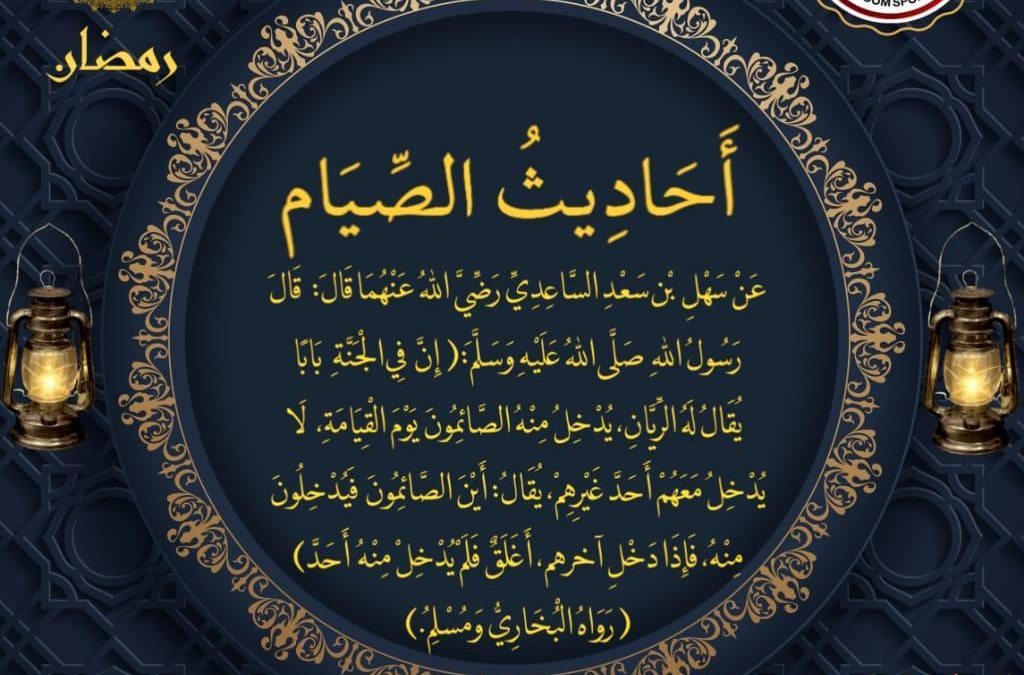 رمضان
OM SPO
أَحَادِيثُ الصِّيَام
عَنْ سَهْلِ بْن سَعْدِ السَّاعِدِيِّ رَضِّيَّ اللهُ عَنْهُمَا قَالَ: قَالَ
رَسُولُ اللهِ صَلَّى اللهُ عَلَيْهِ وَسَلَّمَّ:( إِنَّ فِي الْجَنَّةِ بَابًا
يُقَالُ لَهُ الرِيَّان، يُدْخِلُ مِنْهُ الصَّائِمُونَ يَوْمَ الْقِيَامَةِ، لَا
يُدْخِلُ مَعَهُمْ أَحَدَّ غَيْرِهِمْ، يُقَالُ: أَيْنَ الصَّائِمُونَ فَيُدْخِلُونَ
مِنْهُ، فَإِذَا دَخْلِ آخرهم، أَغْلَقٌ فَلَمْ يُدْخِلْ مِنْهُ أَحَدَّ)
(رَوَاهُ الْبُخَارِيُّ وَمُسْلِمُ.)